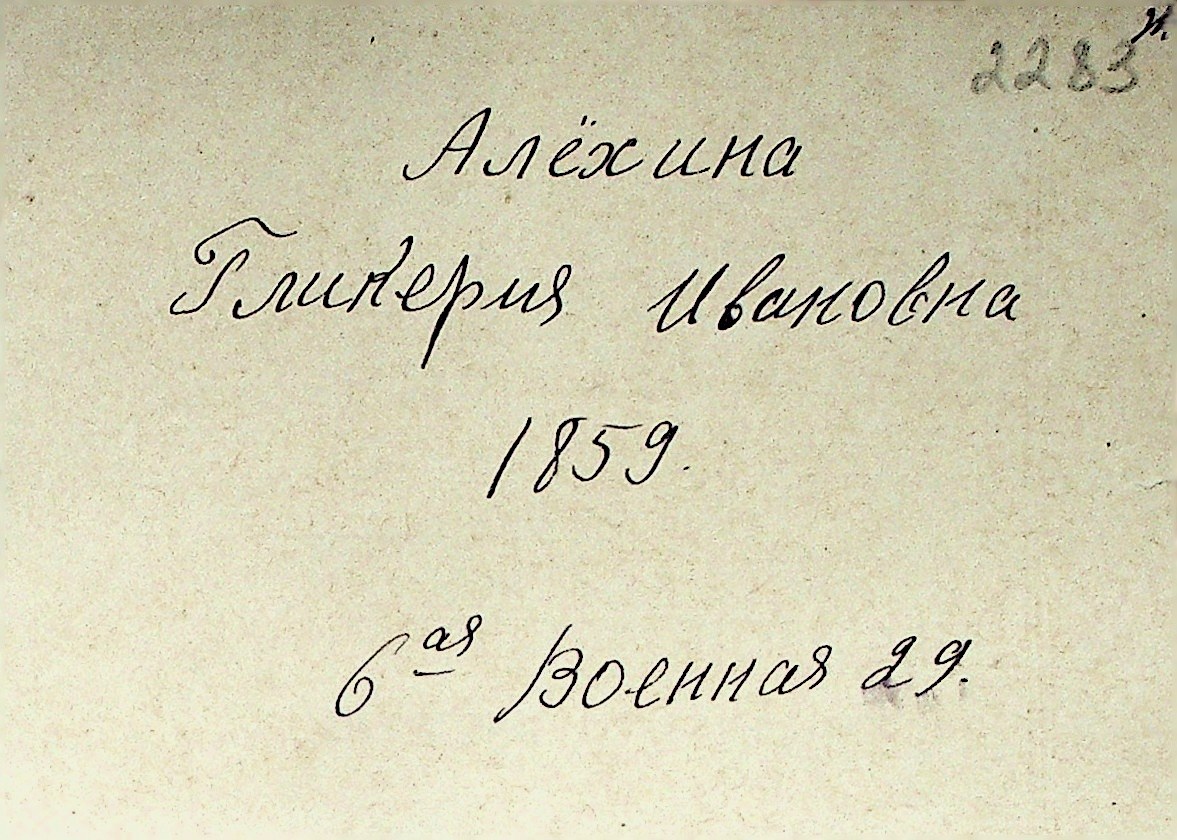 2283
Алёхина
Гликерия Ивановна
1859.
6 ая Военная 29.